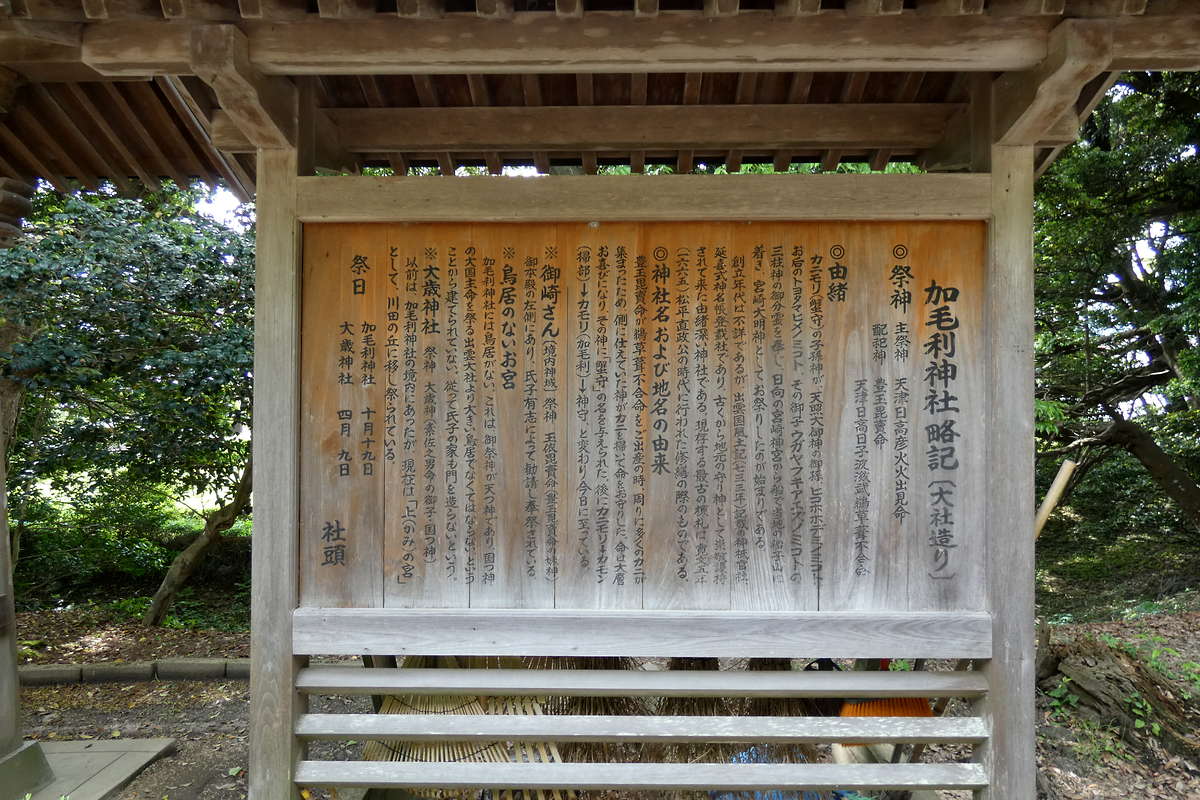 加毛利神社略記〔大社造り〕
◎祭神 主祭神 天津日高彦火火出見命
配祀神 豊玉毘賣命
天津日高日子波限武鵜草葺不合命
◎由緒
カニモリ(蟹守)の子孫神が、天照大御神の御孫、ヒコホホデミノミコト、
お后のトヨタマヒメノミコト、その御子ウガヤフキアエズノミコトの
三柱神の御分霊を奉じ、日向の宮崎神宮から船で当地の
着き、宮崎大明神としてお祭りしたのが始まりである。
創立年代は不詳であるが、出雲国風土記(七三三年)記載の神祇官社、
延喜式神名帳登載社であり、古くから地元の守り神として崇敬護持
されて来た由緒深い神社である。現存する最古の棟札は、寛文五年
(一六六五)松平直政公の時代に行われた修造の際のものである。
◎神社名および地名の由来
豊玉毘賣命が鵜草葺不合命をご出産の時、周りに多くのカニが
集まったため、側に仕えていた神がカニを掃いて命をお守りした。命は大層
お喜びになり、その神に「蟹守」の名を与えられた。後にカニモリ→カモン
(掃部)→カモリ(加毛利)→神守、と変わり今日に至っている。
※御崎さん(境内神域) 祭神 玉依毘賣命(豊玉毘賣命の妹神)
御本殿の左側にあり、氏子有志によって勧請し奉祭されている。
※鳥居のないお宮
加毛利神社には鳥居がない。これは、御祭神が天つ神であり、国つ神
の大国主命を祭る出雲大社より大きい鳥居でなくてはならない、という
ことから建てられていない。従って氏子の家も門を造らないという。
※大歳神社 祭神 大歳神(素佐之男命の御子・国つ神)
以前は、加毛利神社の境内にあったが、現在は「上(かみ)の宮」
として、川田の丘に移し祭られている。
祭日 加毛利神社 十月十九日
大歳神社 四月九日
社頭